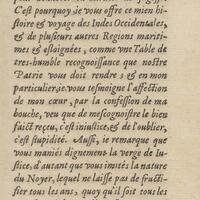 C'est pourquoy, ie vous offre ce mien hi-
stoire & voyage des Indes Occidentales,
& de plusieurs autres Regions mariti-
mes & esloignées, comme vne Table de
tres-humble recognoissance que nostre
Patrie vous doit rendre ; & en mon
particulier, ie vous tesmoigne l'affection
de mon cœur, par la confession de ma
bouche, veu que de mescognoistre le bien
faict reçeu, c'est iniustice, & de l'oublier,
c'est stupidité. Aussi, ie remarque que
vous maniés dignement la verge de Iu-
stice, d'autant que vous imités la nature
du Noyer, lequel ne laisse pas de fructi-
fier tous les ans, quoy qu'il soit tous les